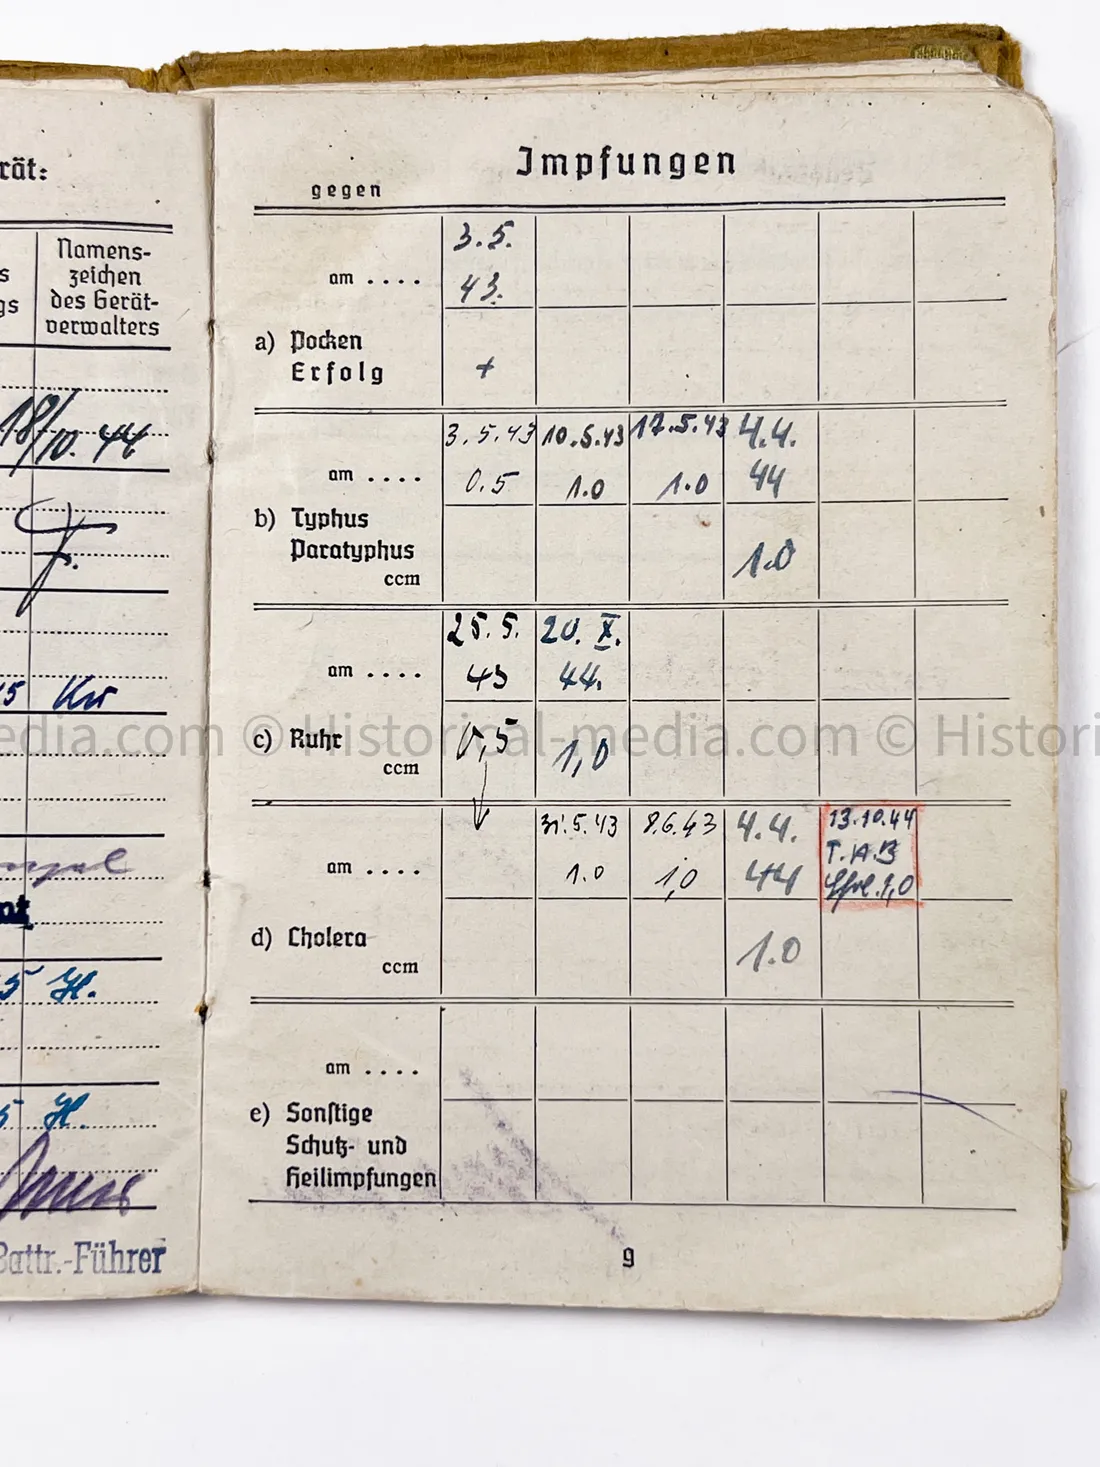 rät:
Namens-
s zeichen
gs des Gerät-
verwalters
18/10. 44
F.
15 Kr
nt
5 H.
5 H.
Battr.-Führer
Impfungen
gegen
3.5.
am .... 43.
a) Pocken
Erfolg +
3.5.43 10.5.43 17.5.43 4.4.
am .... 0.5 1.0 1.0 44
b) Typhus
Paratyphus
ccm 1.0
25.5. 20. X.
am .... 43 44.
c) Ruhr 0,5 1,0
ccm
31.5.43 8.6.43 4.4. 13.10.44
T.A.B
am .... 1.0 1,0 44 1,0
d) Cholera
ccm 1.0
am ....
e) Sonstige
Schutz- und
Heilimpfungen
9
edia.com © Historical-media.com © Histori